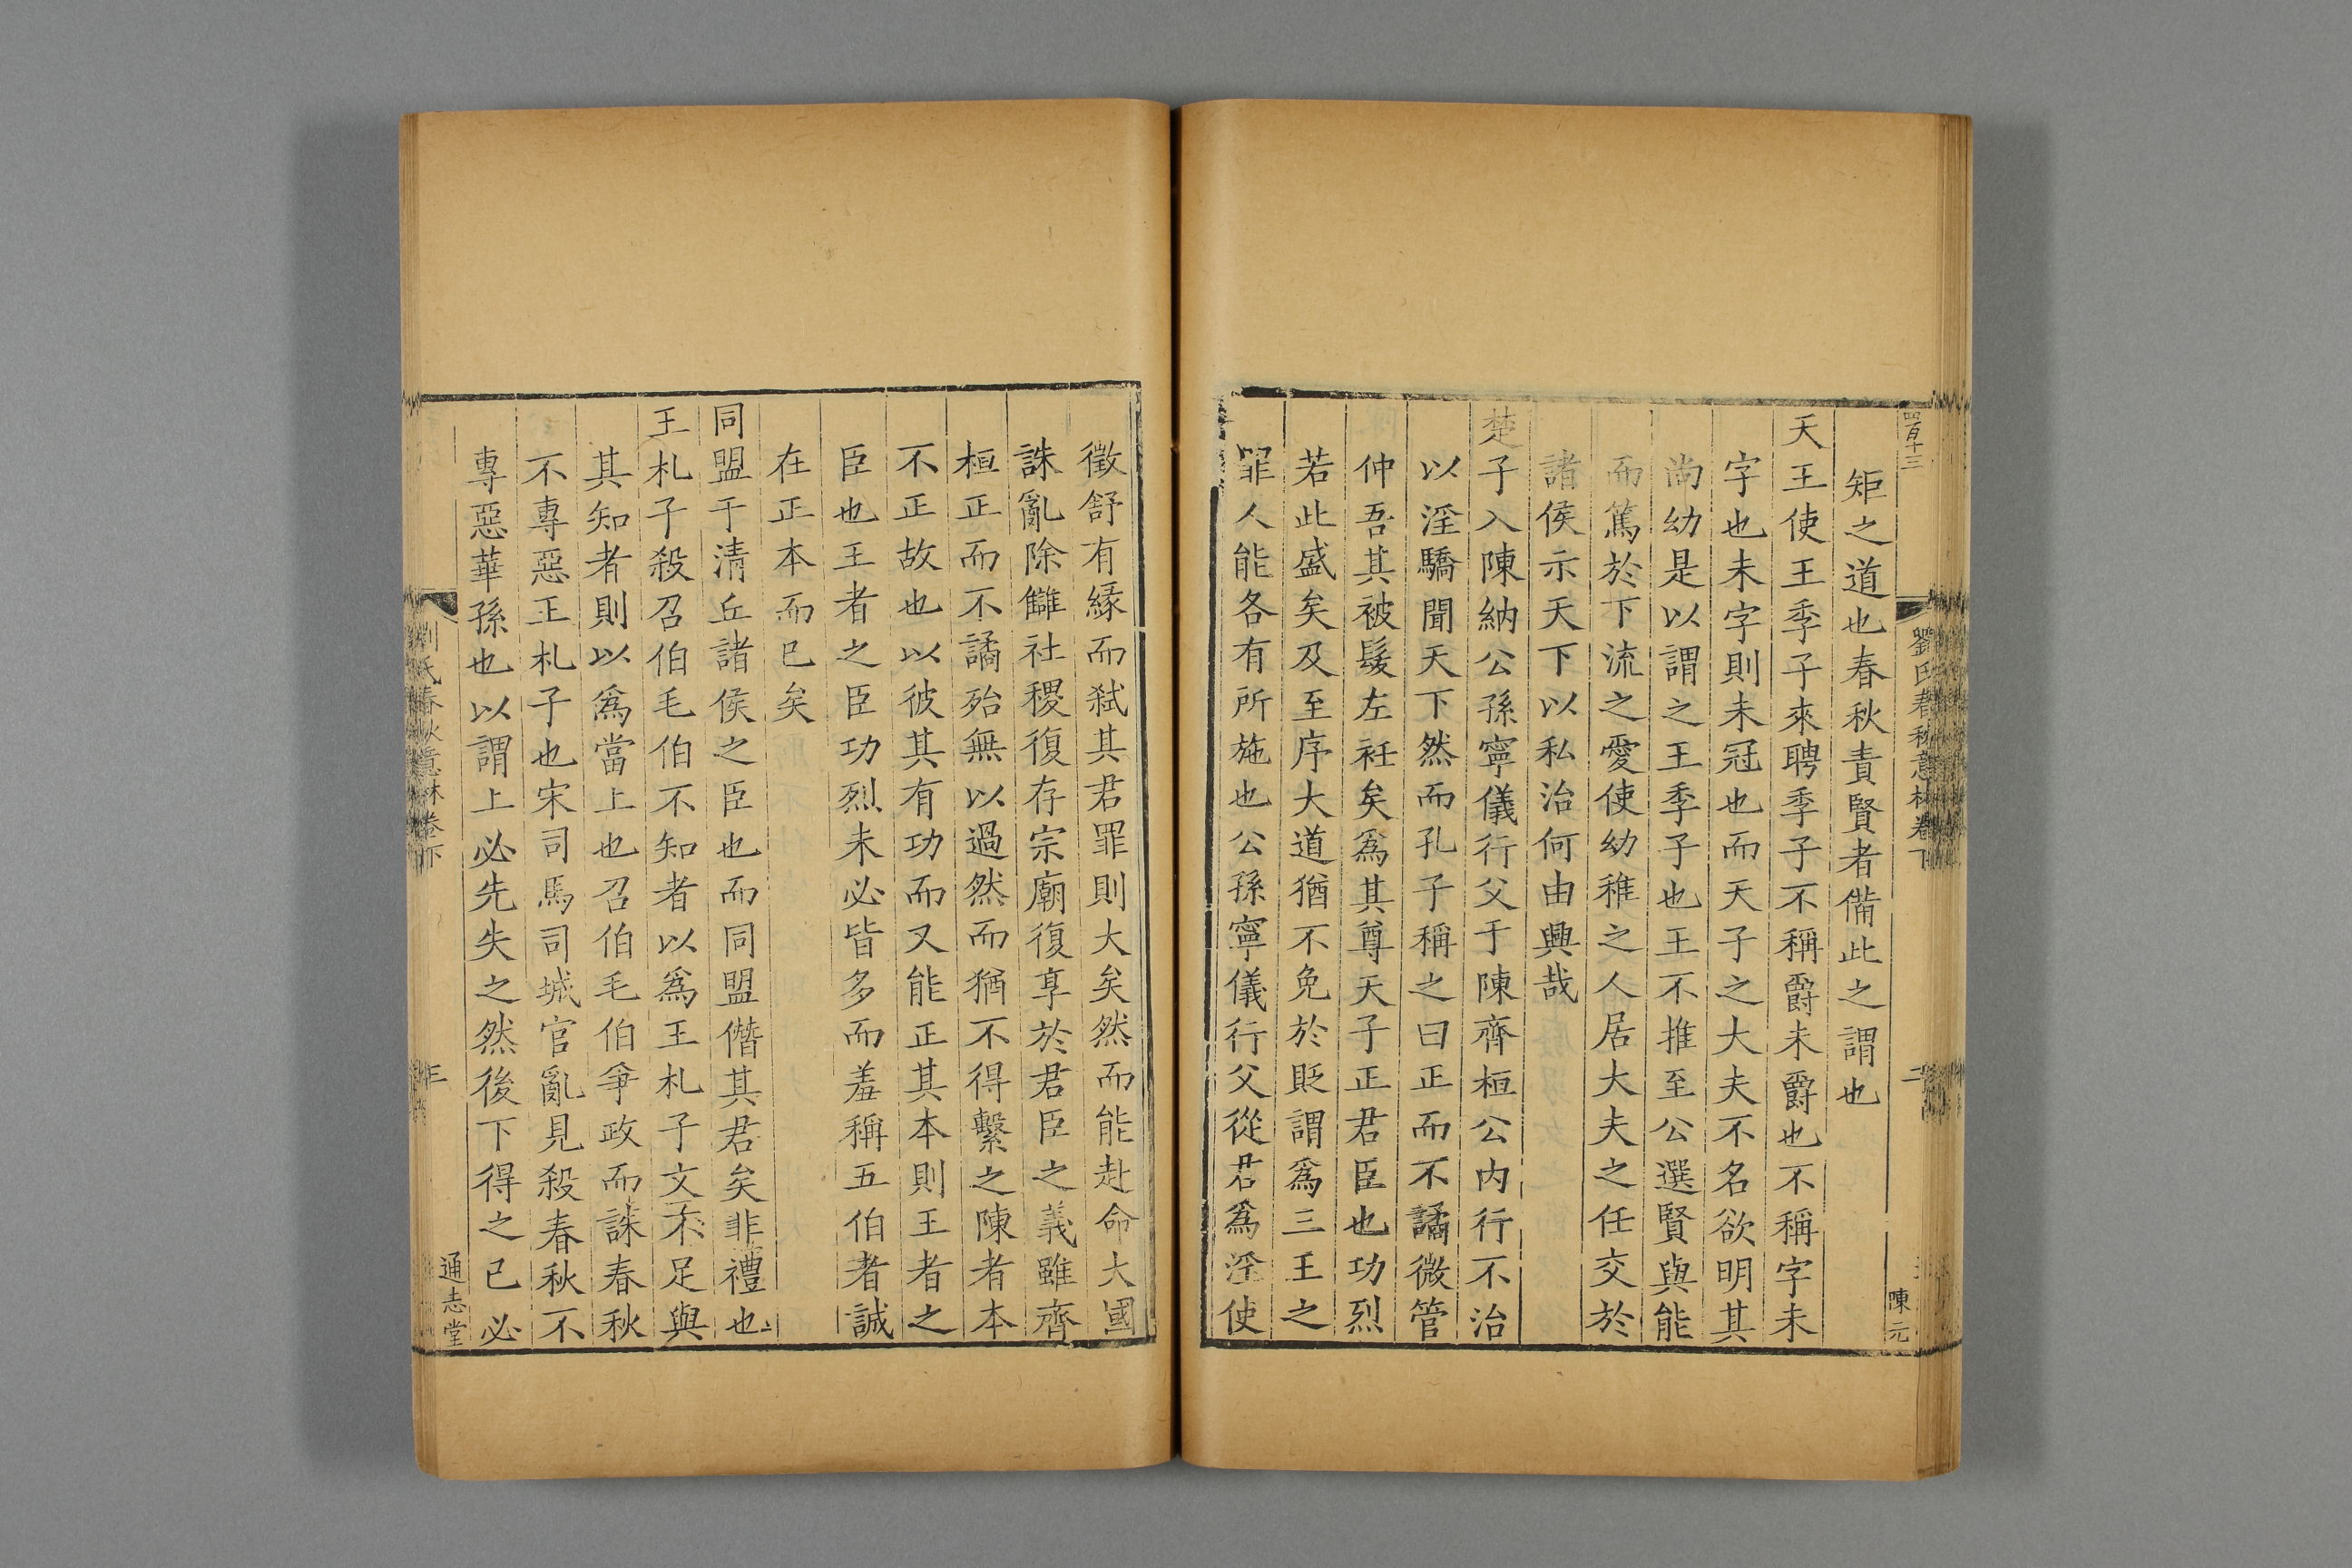 四百十三
劉氏春秋意林卷下
二
陳元
矩之道也春秋責賢者備此之謂也
天王使王季子來聘季子不稱爵未爵也不稱字未
字也未字則未冠也而天子之大夫不名欲明其
尚幼是以謂之王季子也王不推至公選賢與能
而篤於下流之愛使幼稚之人居大夫之任交於
諸侯示天下以私治何由興哉
楚子入陳納公孫寧儀行父于陳齊桓公内行不治
以淫驕聞天下然而孔子稱之曰正而不譎微管
仲吾其被髮左衽矣爲其尊天子正君臣也功烈
若此盛矣及至序大道猶不免於貶謂爲三王之
罪人能各有所施也公孫寧儀行父從君爲淫使
徵舒有緣而弑其君罪則大矣然而能赴命大國
誅亂除讎社稷復存宗廟復享於君臣之義雖齊
桓正而不譎殆無以過然而猶不得繫之陳者本
不正故也以彼其有功而又能正其本則王者之
臣也王者之臣功烈未必皆多而羞稱五伯者誠
在正本而已矣
同盟于清丘諸侯之臣也而同盟僭其君矣非禮也
王札子殺召伯毛伯不知者以爲王札子文不足與
其知者則以爲當上也召伯毛伯爭政而誅春秋
不專惡王札子也宋司馬司城官亂見殺春秋不
專惡華孫也以謂上必先失之然後下得之已必
劉氏春秋意林卷下
三
通志堂